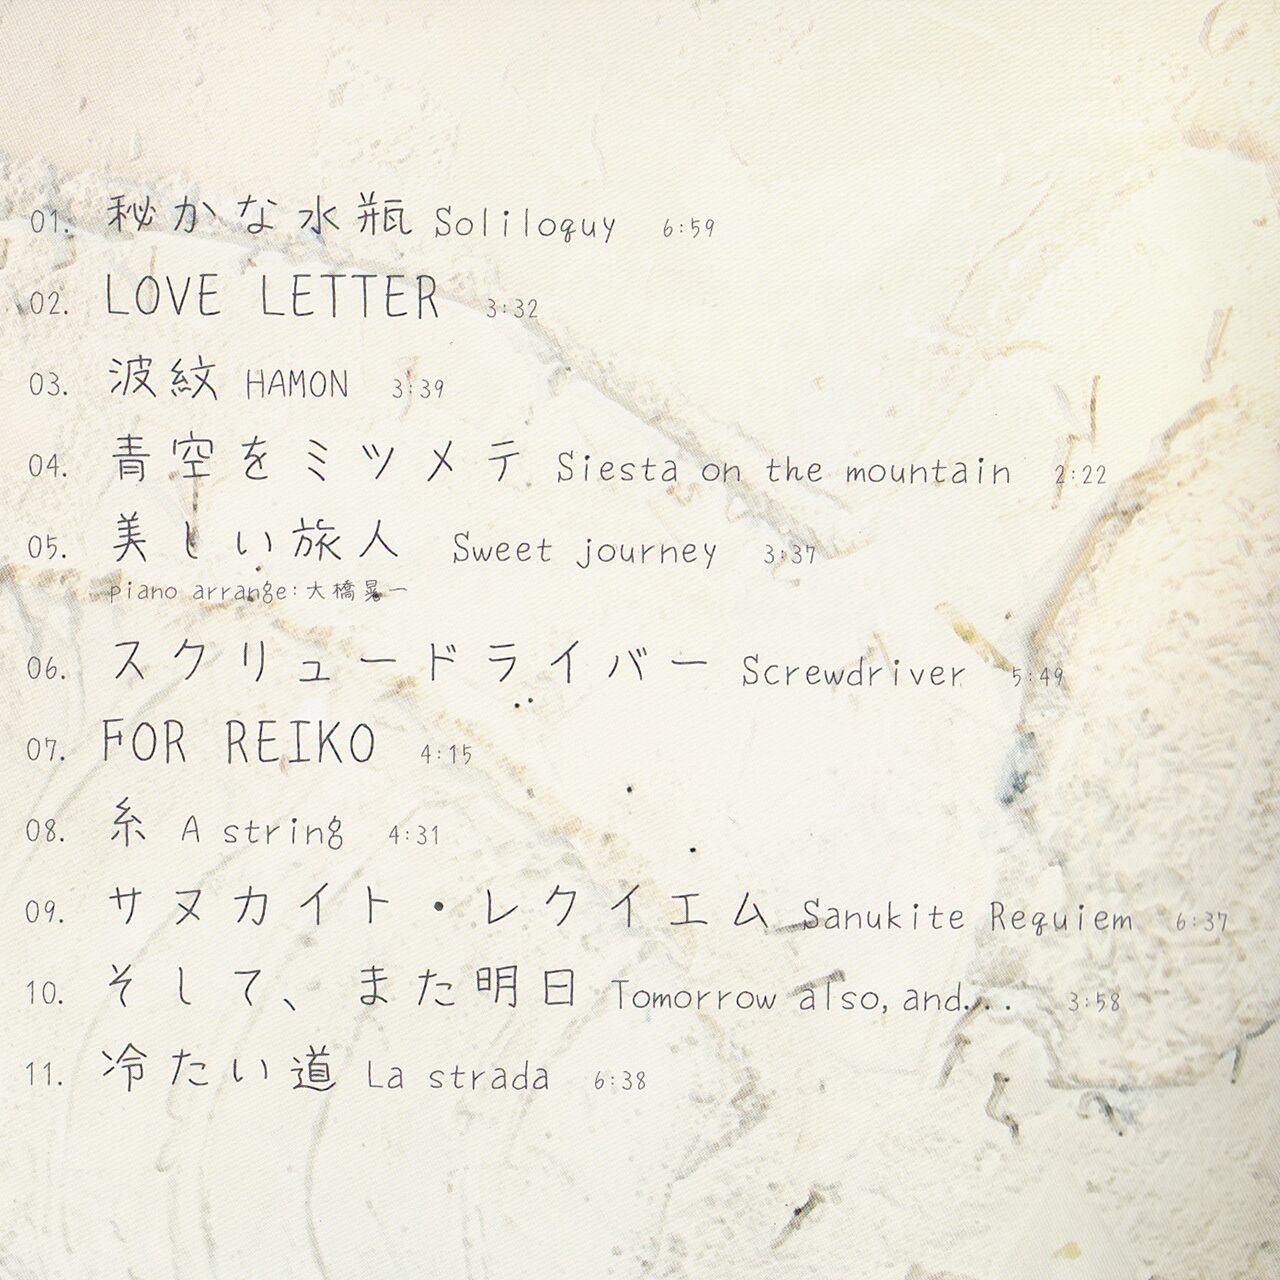 01. 秘かな水瓶 Soliloquy 6:59
02. LOVE LETTER 3:32
03. 波紋 HAMON 3:39
04. 青空をミツメテ Siesta on the mountain 2:22
05. 美しい旅人 Sweet journey 3:37
piano arrange:大橋晃一
06. スクリュードライバー Screwdriver 5:49
07. FOR REIKO 4:15
08. 糸 A string 4:31
09. サヌカイト・レクイエム Sanukite Requiem 6:37
10. そして、また明日 Tomorrow also, and... 3:58
11. 冷たい道 La strada 6:38